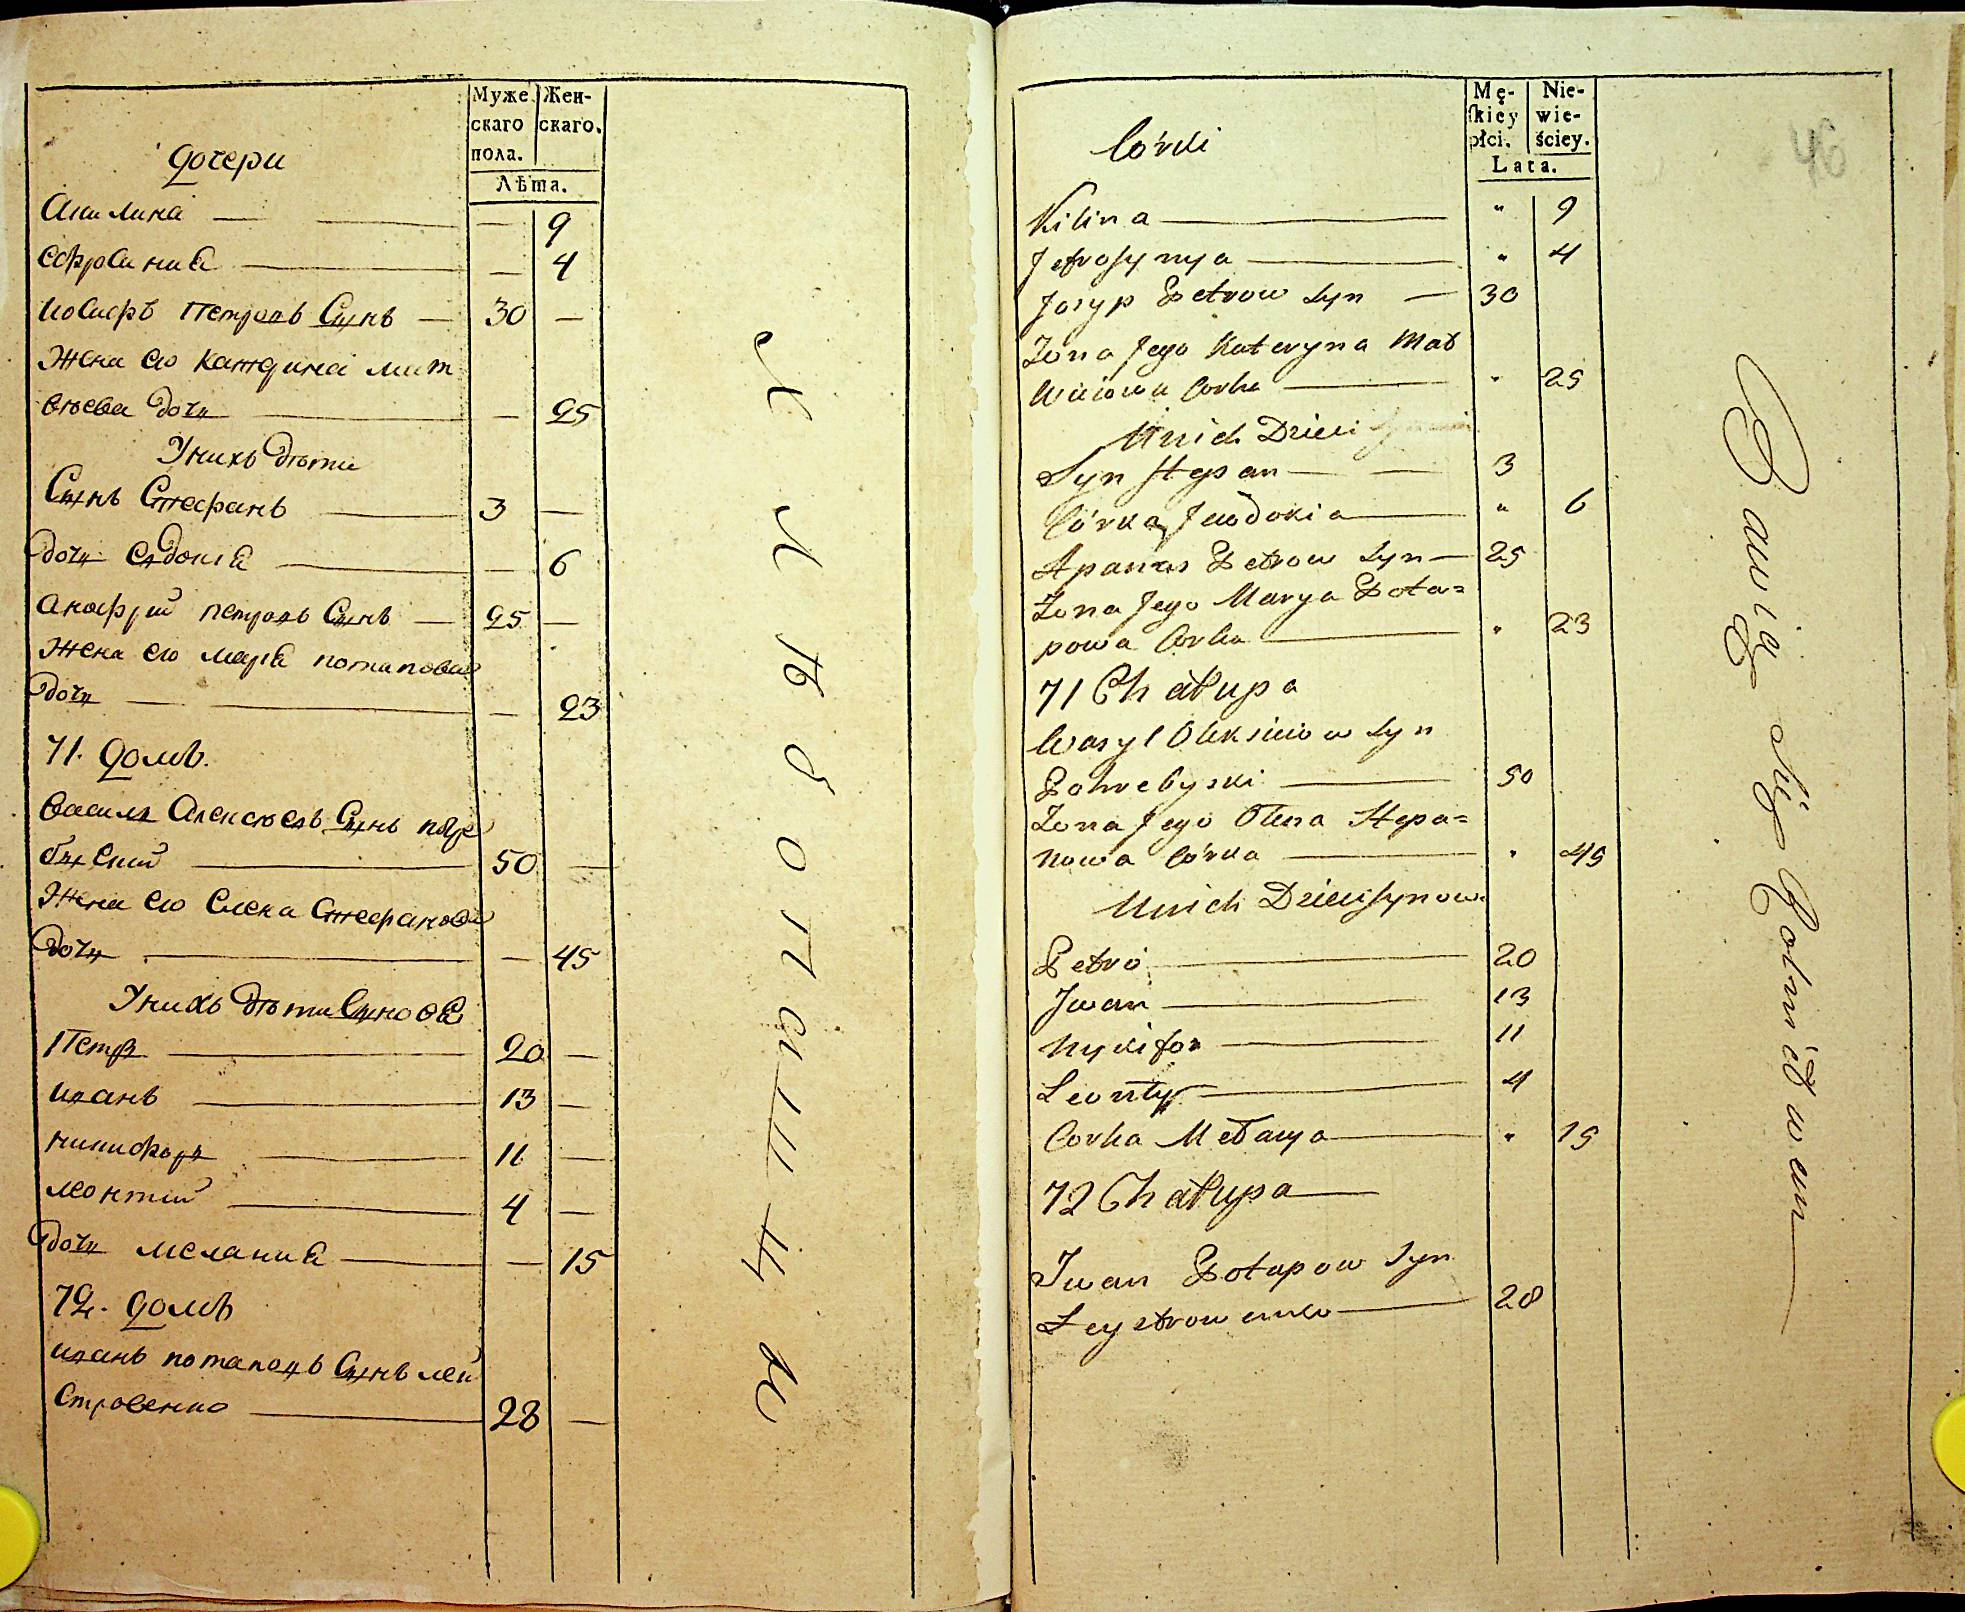 Муже Жен-
скаго скаго.
пола.
Лѣта.
дочери
Акилина — 9
Ефросиния — 4
Иосифъ Петровъ Сынъ — 30 —
Жена его Катерина мат
веева дочь — 25
У нихъ дѣти
Сынъ Стефанъ — 3 —
дочь Евдокия — 6
Анофрий петровъ Сынъ — 25 —
Жена его Мария потапова
дочь — 23
71. домъ.
Василь Алексеевъ Сынъ погре
быский — 50 —
Жена его Елена Стефанова
дочь — 45
У нихъ дѣти Синовя
Петръ — 20 —
иванъ — 13 —
никифоръ — 11 —
леонтий — 4 —
дочь мелания — 15
72. домъ
иванъ потаповъ Сынъ леи
стровенко — 28 —
Хлѣбопашци
Mę- Nie-
skiey wie-
płci. ściey.
Lata.
46
Córki
Kilina — " 9
Jefrosynya — " 4
Josyp Petrow syn — 30
Zona Jego Kateryna Mat
wiiowa Corka — " 25
Unich Dzieci
Syn Stepan — 3
Córka Jewdokia — " 6
Apanas Petrow syn — 25
Zona Jego Marya Pota=
powa Corka — " 23
71 Chałupa
Wasyl Oleksiiow syn
Pohrebyski — 50
Zona Jego Olena Stepa=
nowa Córka — " 45
Unich Dzieci synow
Petro — 20
Jwan — 13
Nykifor — 11
Leonty — 4
Corka Melanya — " 15
72 Chałupa —
Jwan Potapow syn
Leystrowenko — 28
Bawią się Rolnictwem